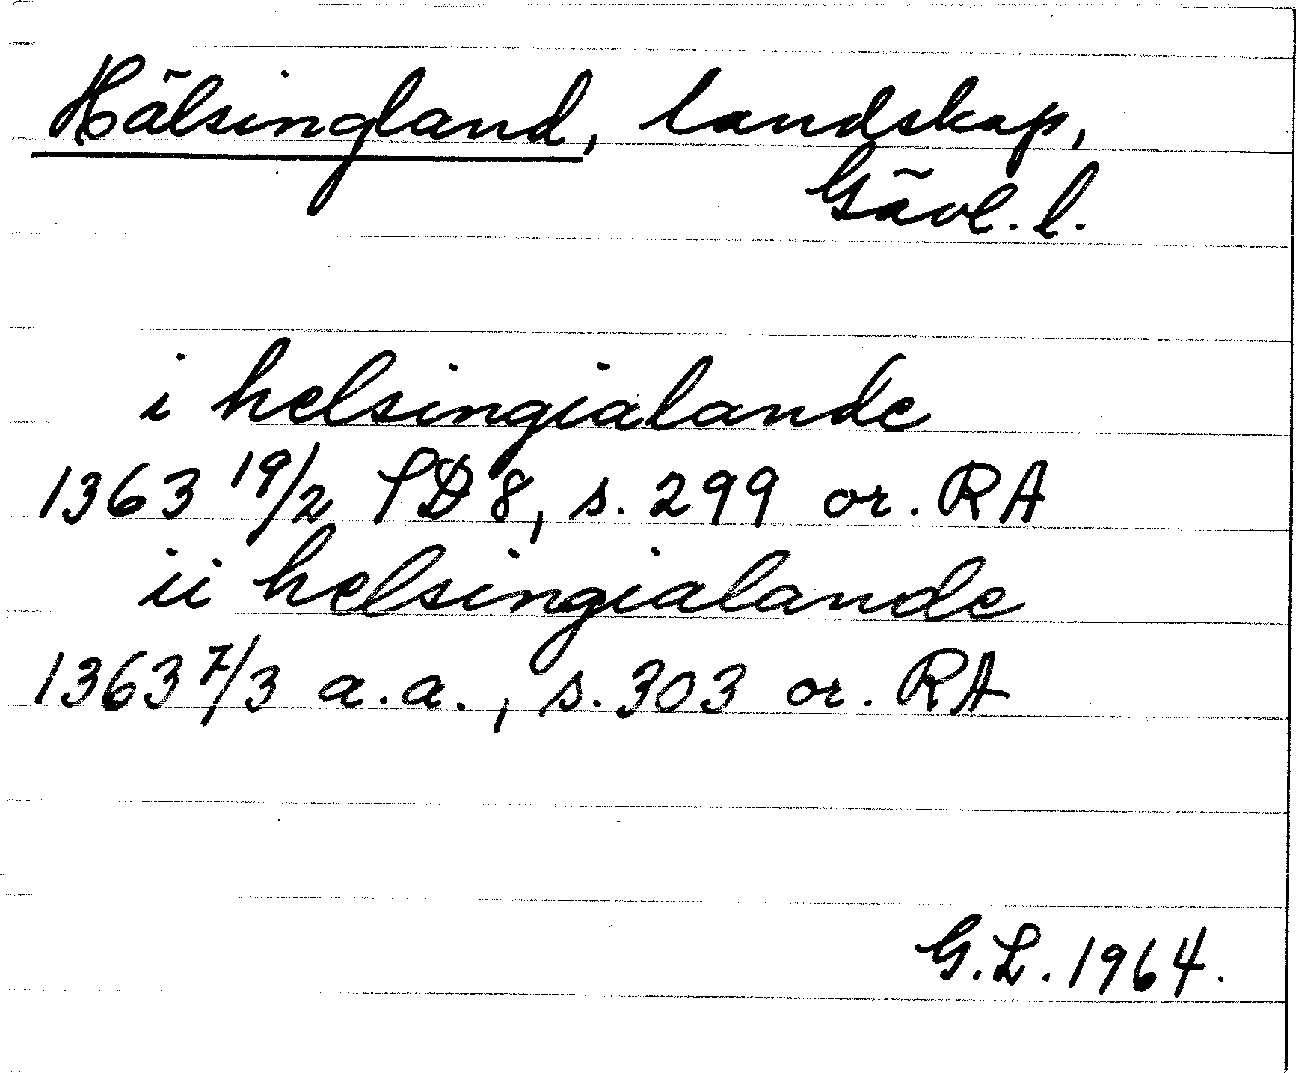 Hälsingland, landskap,
Gävl. l.
i helsingialande
1363 19/2 SD 8, s. 299 or. RA
ii helsingialande
1363 7/3 a.a., s. 303 or. RA
G.L. 1964.